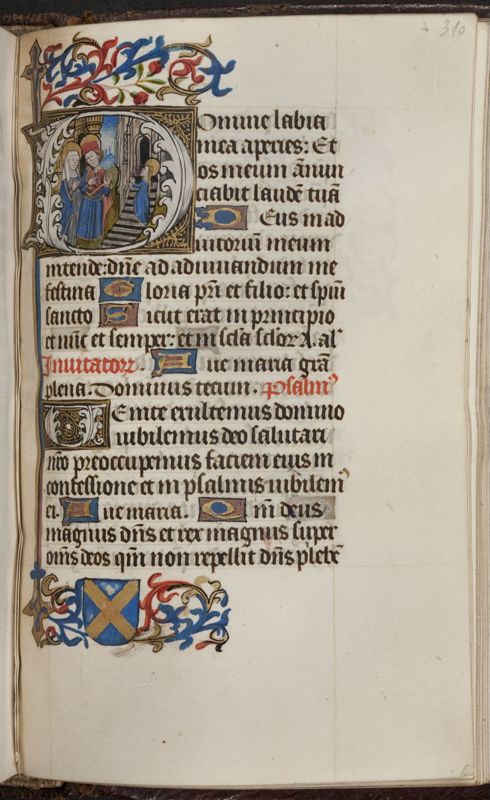 310
Domine labia
mea aperies: Et
os meum ānun
ciabit laudē tuā
Deus in ad
iutoriū meum
intende: dn̄e ad adiuuandum me
festina Gloria pr̄i et filio: et spiū
sancto Sicut erat in principio
et nūc et semper: et in sc̄la sc̄lor A. al'
Inuitator Aue maria grā
plena. Dominus tecum. psalm9
Uenite exultemus domino
iubilemus deo salutari
nr̄o preoccupemus faciem eius in
confessione et in psalmis iubilem9
ei. Aue maria. Qm̄ deus
magnus dn̄s et rex magnus super
om̄s deos qm̄ non repellit dn̄s plebē